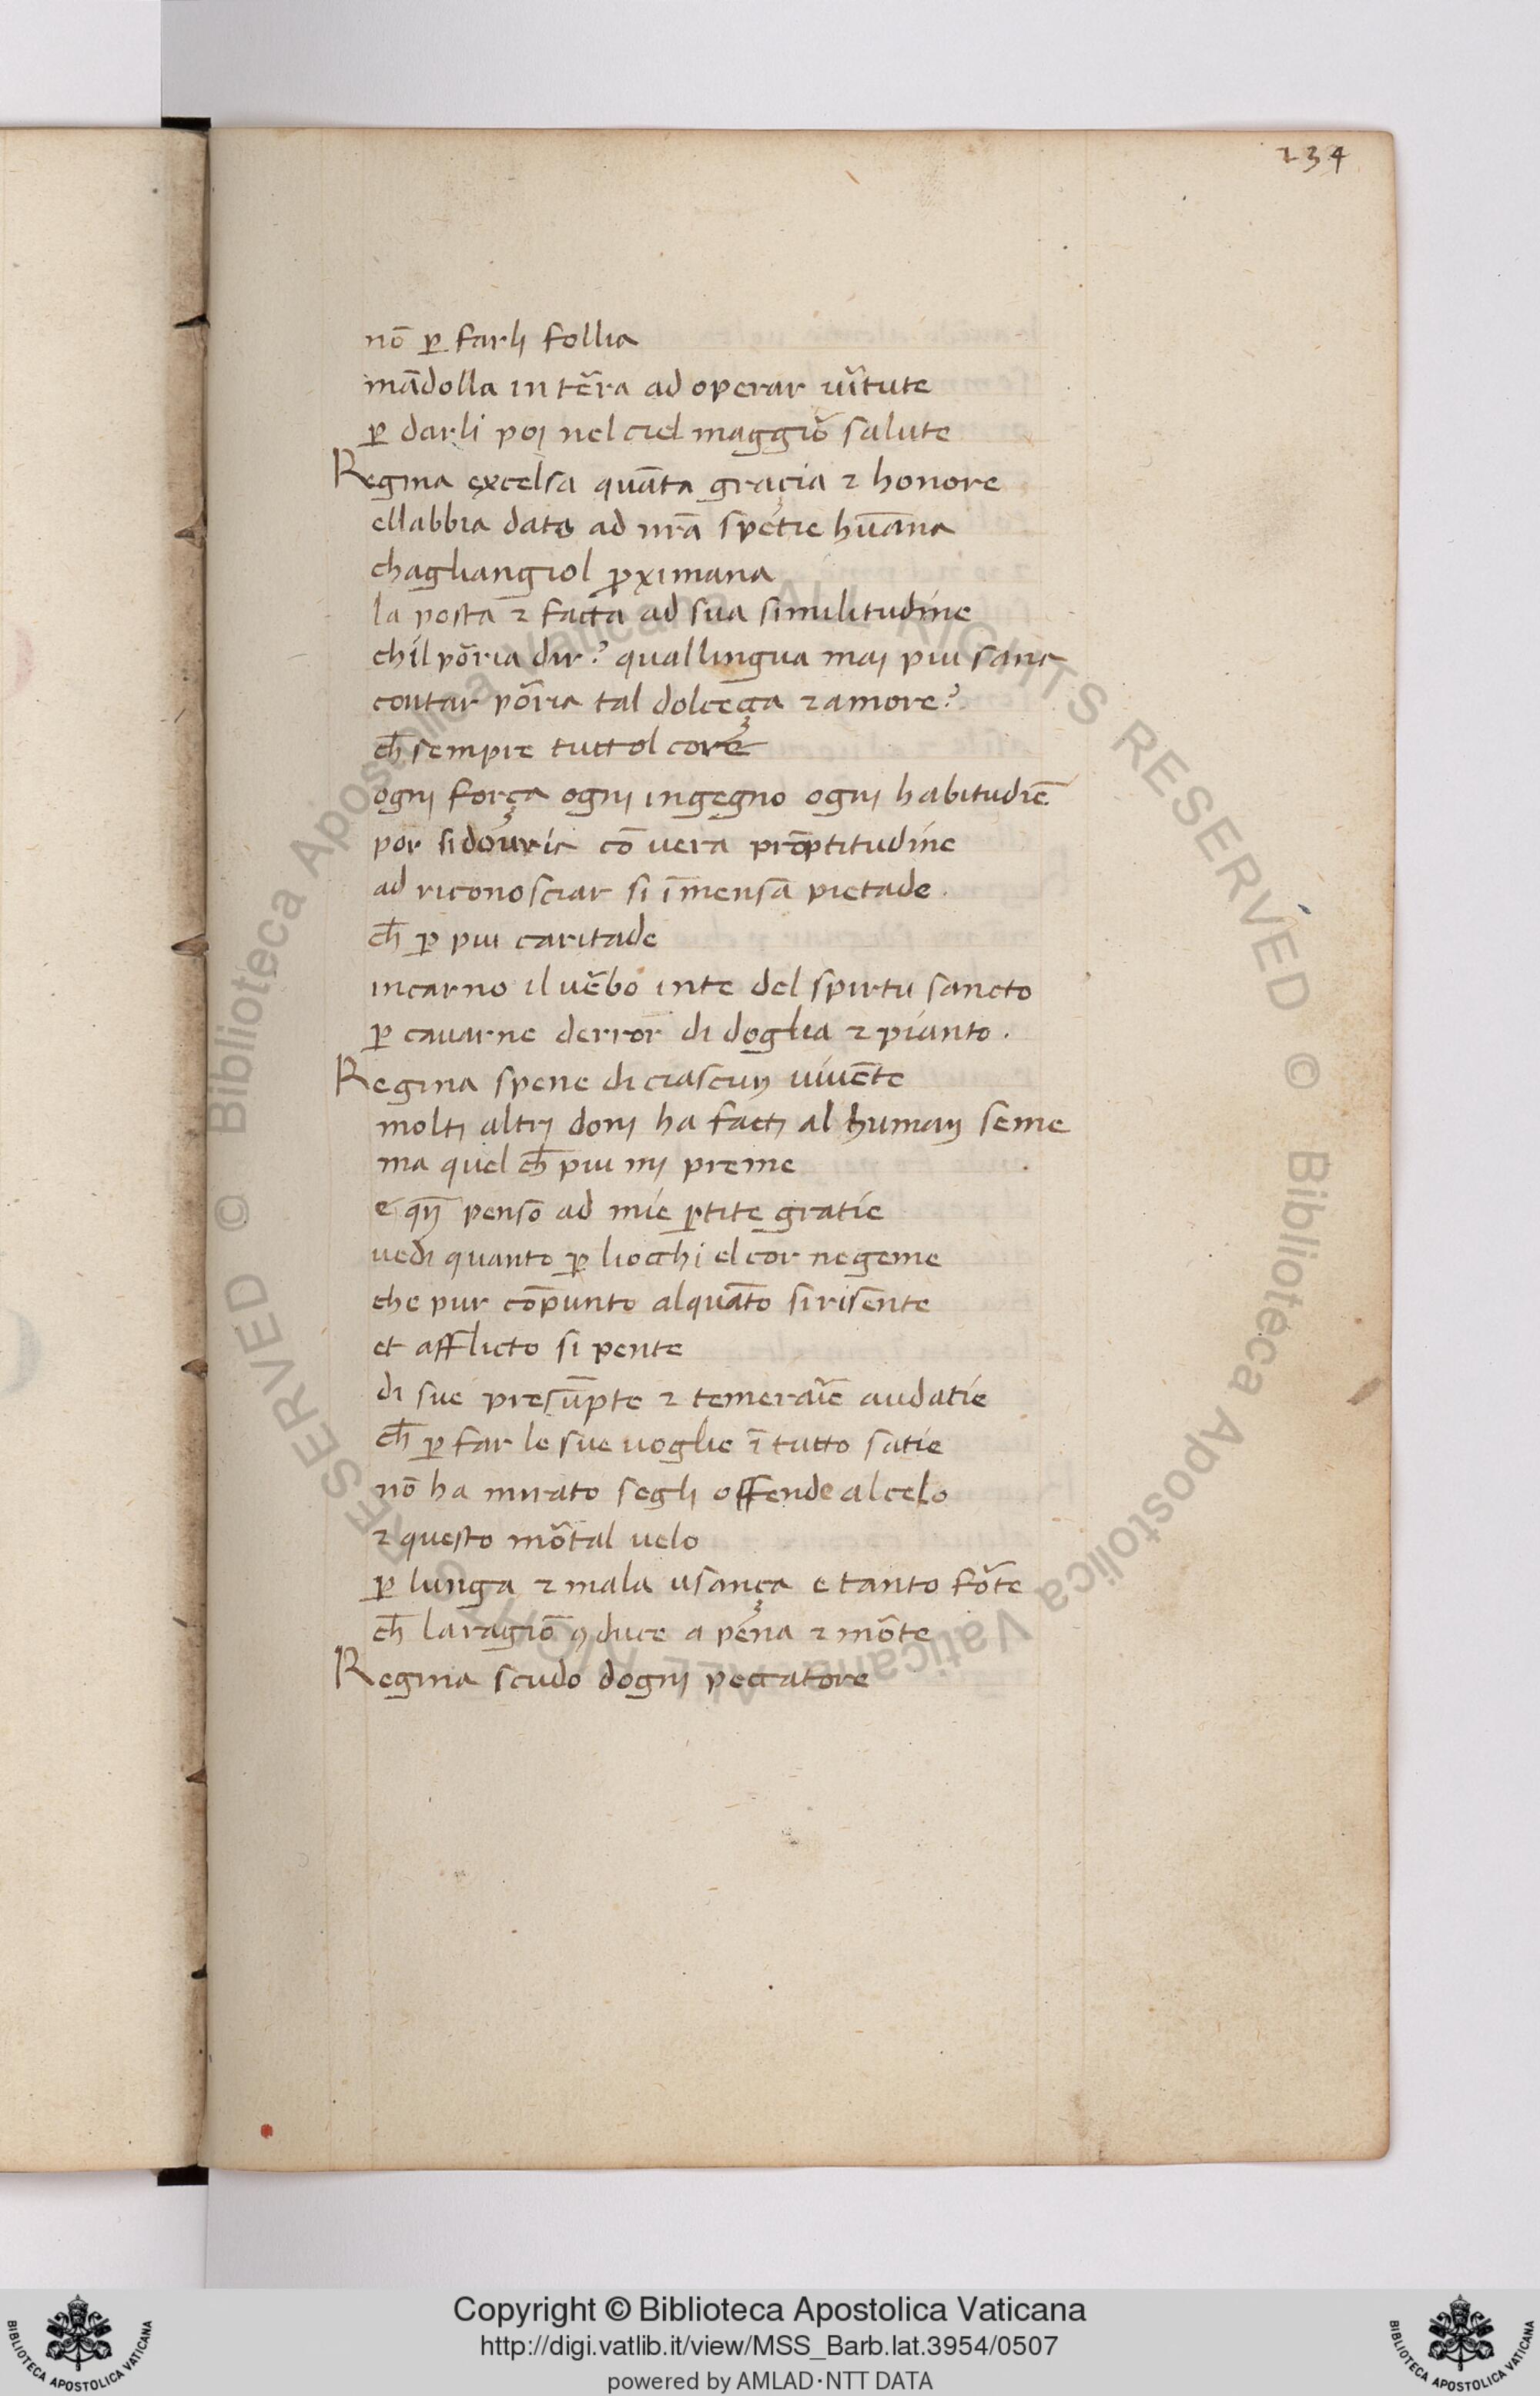 234
nō ꝑ farlj follia
mādolla in tēra ad operar uĩtute
ꝑ darli poj nel ciel maggiõ salute
Regina excelsa quāta graçia ⁊ honore
ellabbia data ad nr̄a spetie hūana
chaglangiol ꝓximana
la posta ⁊ facta ad sua similitudine
chil põria dir? qual lingua maj piu sana
contar põria tal dolceça ⁊ amore?
ch̄ sempre tuttol core
ognj força ognj ingegno ognj habitudīe
por si douria cō uera prōptitudine
ad riconosciar si īmensa pietade.
ch̄ ꝑ piu caritade
incarno il uẽbo inte del spirtu sancto
ꝑ cauarne derror di doglia ⁊ pianto.
Regina spene di ciascuɲ uiuēte
moltj altrj donj ha factj al humaɲ seme
ma quel ch̄ piu mj preme
e qɲ̄ penso ad mie ꝑtite gratie
uedi quanto ꝑ liocchi el cor negeme
che pur cōpunto alquāto si risente
et afflicto si pente
di sue presūpte ⁊ temeraĩe audatie
ch̄ ꝑ far le sue uoglie ī tutto satie
nō ha mirato seglj offende al celo
⁊ questo mõtal uelo
ꝑ lunga ⁊ mala usança e tanto fõte
ch̄ la ragiō ꝯduce a pena ⁊ mõte
Regina scudo dognj peccatore
Copyright © Biblioteca Apostolica Vaticana
http://digi.vatlib.it/view/MSS_Barb.lat.3954/0507
powered by AMLAD·NTT DATA
BIBLIOTECA APOSTOLICA VATICANA
BIBLIOTECA APOSTOLICA VATICANA
© Biblioteca Apostolica Vaticana ALL RIGHTS RESERVED
© Biblioteca Apostolica Vaticana ALL RIGHTS RESERVED